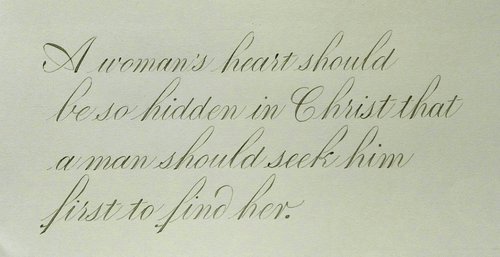 A woman's heart should
be so hidden in Christ that
a man should seek him
first to find her.